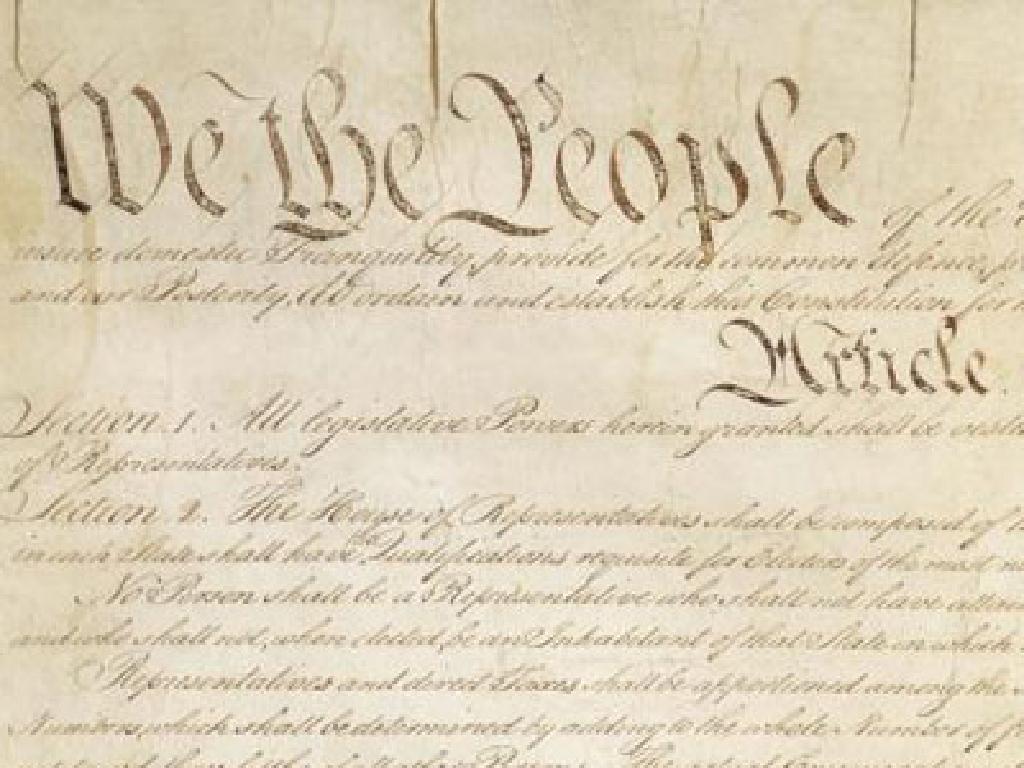 We the People of the
insure domestic Tranquility, provide for the common defence,
and our Posterity, do ordain and establish this Constitution for
Article.
Section. 1. All legislative Powers herein granted shall be
of Representatives.
Section. 2. The House of Representatives shall be composed of
in each State shall have Qualifications requisite for Electors of the most
No Person shall be a Representative who shall not have
and who shall not, when elected, be an Inhabitant of that State in which
Representatives and direct Taxes shall be apportioned among the
Numbers, which shall be determined by adding to the whole Number of